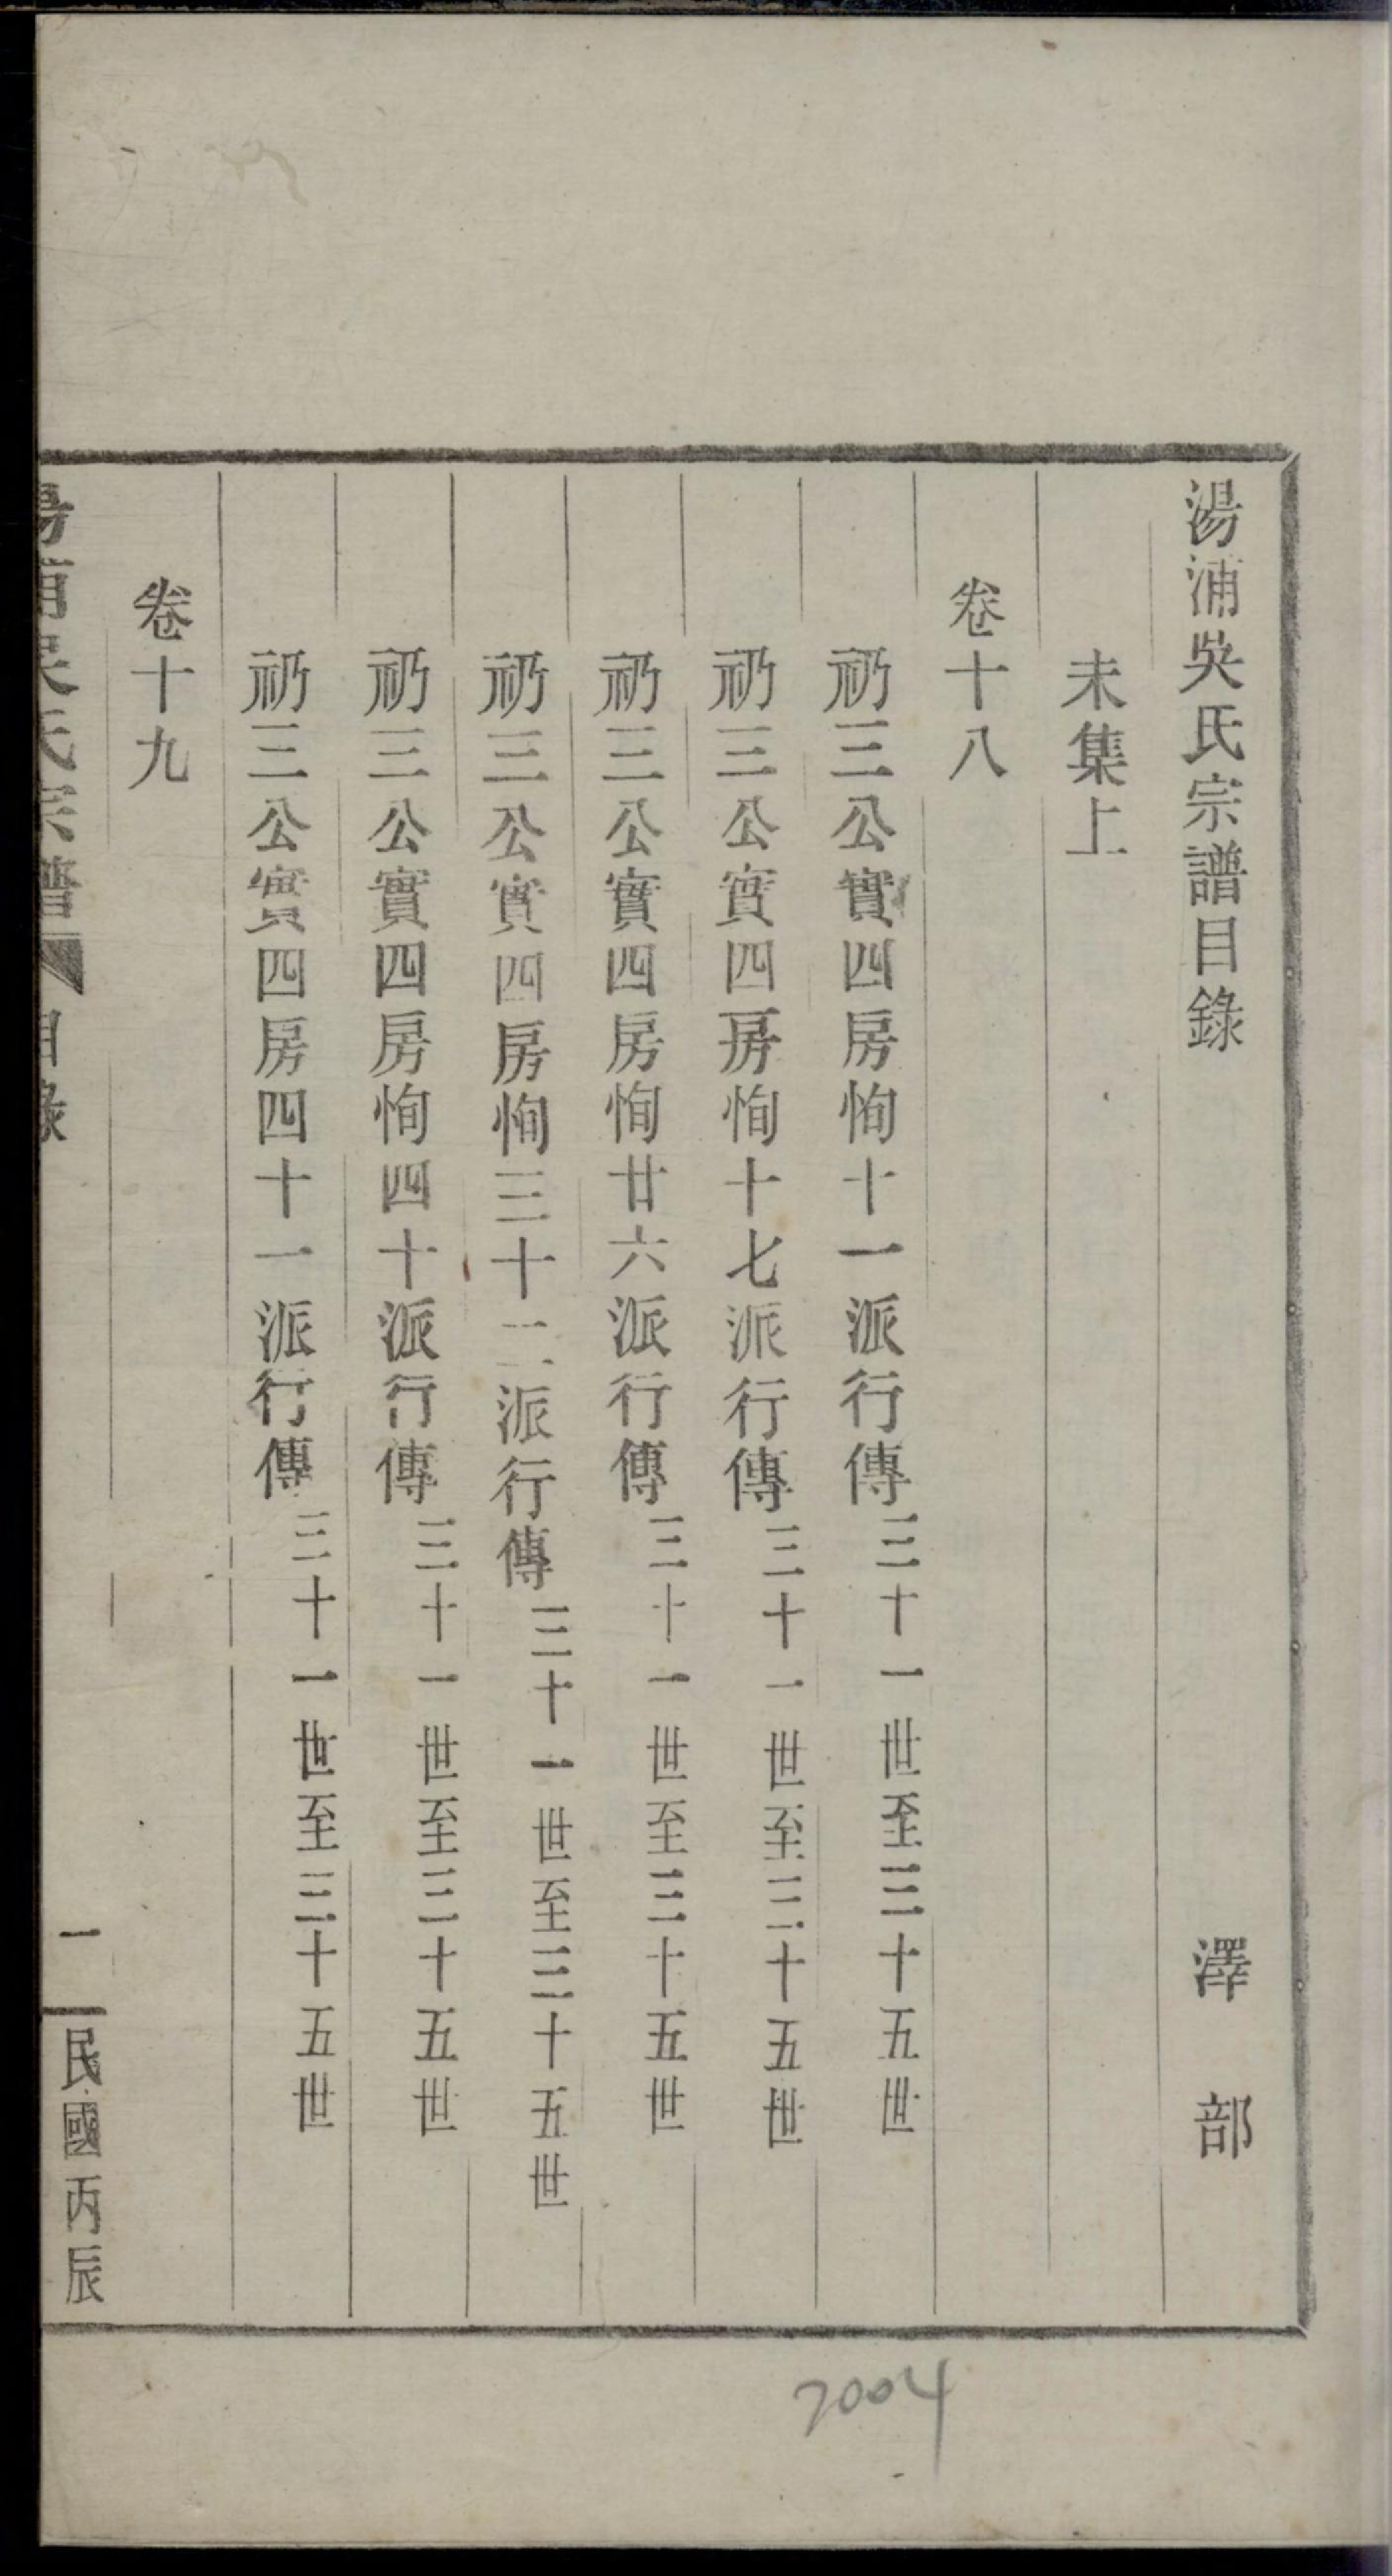 湯浦吳氏宗譜目錄 澤部
未集上
卷十八
礽三公實四房恂十一派行傳 三十一世至三十五世
礽三公實四房恂十七派行傳 三十一世至三十五世
礽三公實四房恂廿六派行傳 三十一世至三十五世
礽三公實四房恂三十二派行傳 三十一世至三十五世
礽三公實四房恂四十派行傳 三十一世至三十五世
礽三公實四房四十一派行傳 三十一世至三十五世
卷十九
湯浦吳氏宗譜 目錄 一 民國丙辰
2004